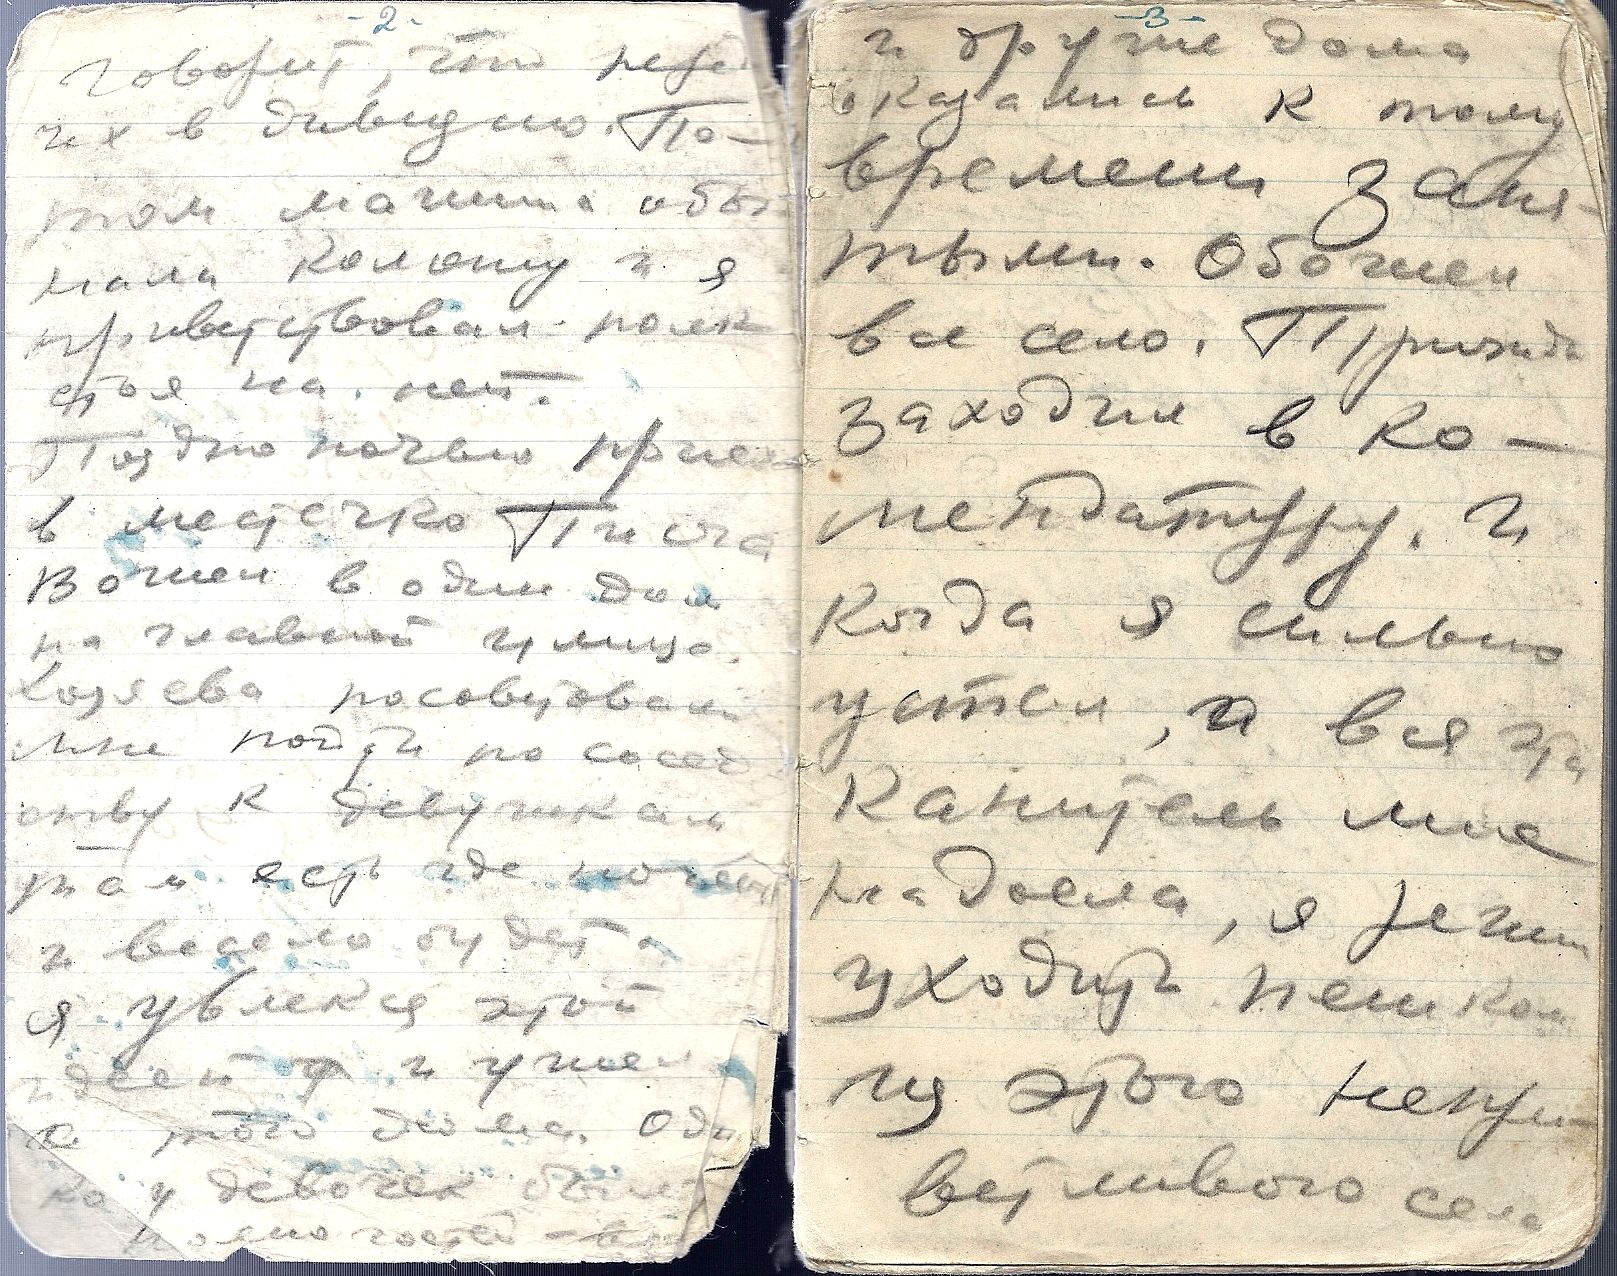 -2-
говорит, что передал
их в дивизию. По-
том машина обог-
нала колонну и я
приветствовал полк
стоя на ней.
Поздно ночью приех
в местечко Пиюча
Вошел в один дом
на главной улице.
Хозяева посовутовали
мне пойти по сосед
ству к девушкам
там есть где ночевать
и весело будет.
Я увлекся этой
идеей и ушел
из того дома. Одна
ко у девочек было
полно гостей -
-3-
и другие дома
оказались к тому
времени заня-
тыми. Обошел
все село. Трижды
заходил в ко-
мендатуру. и
когда я сильно
устал, а вся эта
канитель мне
надоела, я решил
уходить пешком
из этого непри-
ветливого села